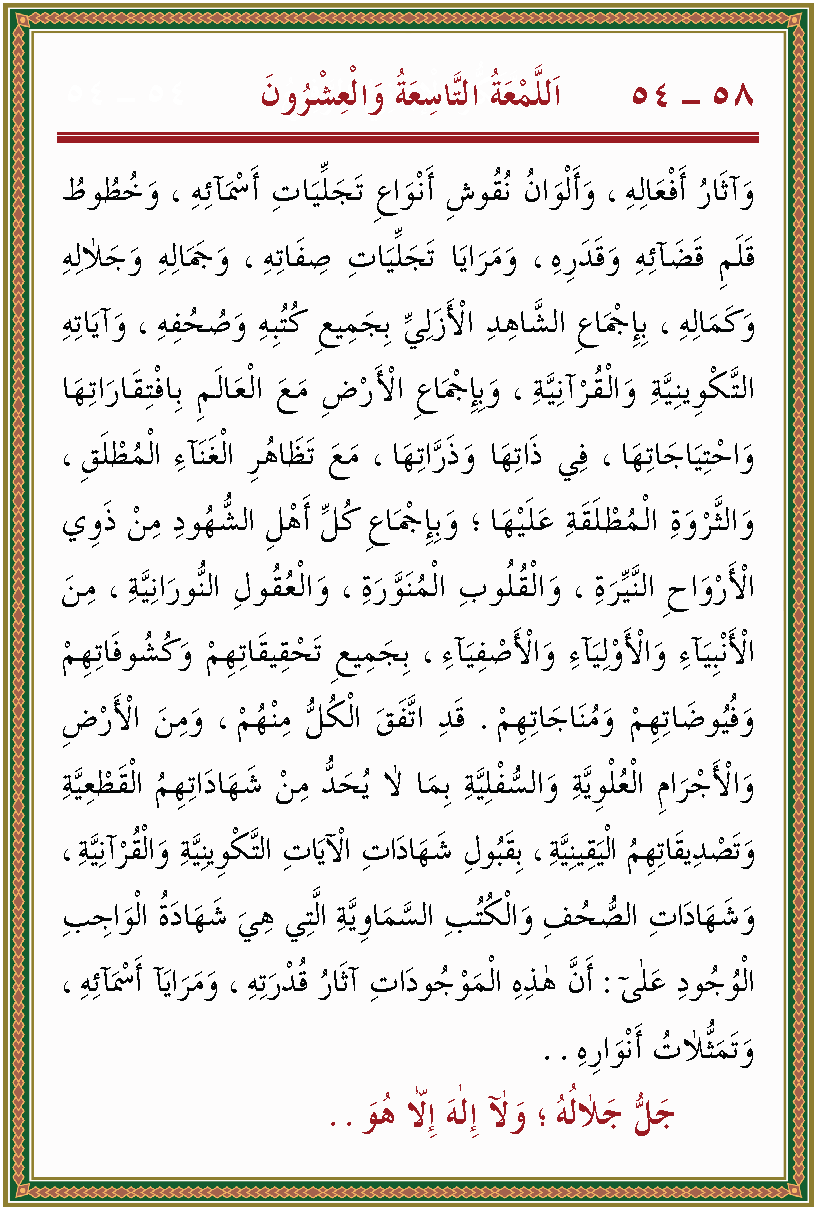 ٥٨ ــ ٥٤ اَللَّمْعَةُ التَّاسِعَةُ وَالْعِشْرُونَ
وَآثَارُ أَفْعَالِهِ ، وَأَلْوَانُ نُقُوشِ أَنْوَاعِ تَجَلِّيَاتِ أَسْمَآئِهِ ، وَخُطُوطُ
قَلَمِ قَضَآئِهِ وَقَدَرِهِ ، وَمَرَايَا تَجَلِّيَاتِ صِفَاتِهِ ، وَجَمَالِهِ وَجَلاٰلِهِ
وَكَمَالِهِ ، بِإِجْمَاعِ الشَّاهِدِ الْأَزَلِيِّ بِجَمِيعِ كُتُبِهِ وَصُحُفِهِ ، وَآيَاتِهِ
التَّكْوِينِيَّةِ وَالْقُرْآنِيَّةِ ، وَبِإِجْمَاعِ الْأَرْضِ مَعَ الْعَالَمِ بِافْتِقَارَاتِهَا
وَاحْتِيَاجَاتِهَا ، فِي ذَاتِهَا وَذَرَّاتِهَا ، مَعَ تَظَاهُرِ الْغَنَآءِ الْمُطْلَقِ ،
وَالثَّرْوَةِ الْمُطْلَقَةِ عَلَيْهَا ؛ وَبِإِجْمَاعِ كُلِّ أَهْلِ الشُّهُودِ مِنْ ذَوِي
الْأَرْوَاحِ النَّيِّرَةِ ، وَالْقُلُوبِ الْمُنَوَّرَةِ ، وَالْعُقُولِ النُّورَانِيَّةِ ، مِنَ
الْأَنْبِيَآءِ وَالْأَوْلِيَآءِ وَالْأَصْفِيَآءِ ، بِجَمِيعِ تَحْقِيقَاتِهِمْ وَكُشُوفَاتِهِمْ
وَفُيُوضَاتِهِمْ وَمُنَاجَاتِهِمْ . قَدِ اتَّفَقَ الْكُلُّ مِنْهُمْ ، وَمِنَ الْأَرْضِ
وَالْأَجْرَامِ الْعُلْوِيَّةِ وَالسُّفْلِيَّةِ بِمَا لاٰ يُحَدُّ مِنْ شَهَادَاتِهِمُ الْقَطْعِيَّةِ
وَتَصْدِيقَاتِهِمُ الْيَقِينِيَّةِ ، بِقَبُولِ شَهَادَاتِ الْآيَاتِ التَّكْوِينِيَّةِ وَالْقُرْآنِيَّةِ ،
وَشَهَادَاتِ الصُّحُفِ وَالْكُتُبِ السَّمَاوِيَّةِ الَّتِي هِيَ شَهَادَةُ الْوَاجِبِ
الْوُجُودِ عَلٰىٓ : أَنَّ هٰذِهِ الْمَوْجُودَاتِ آثَارُ قُدْرَتِهِ ، وَمَرَايَآ أَسْمَآئِهِ ،
وَتَمَثُّلاٰتُ أَنْوَارِهِ . .
جَلَّ جَلاٰلُهُ ؛ وَلآٰ إِلٰهَ إِلاّٰ هُوَ . .